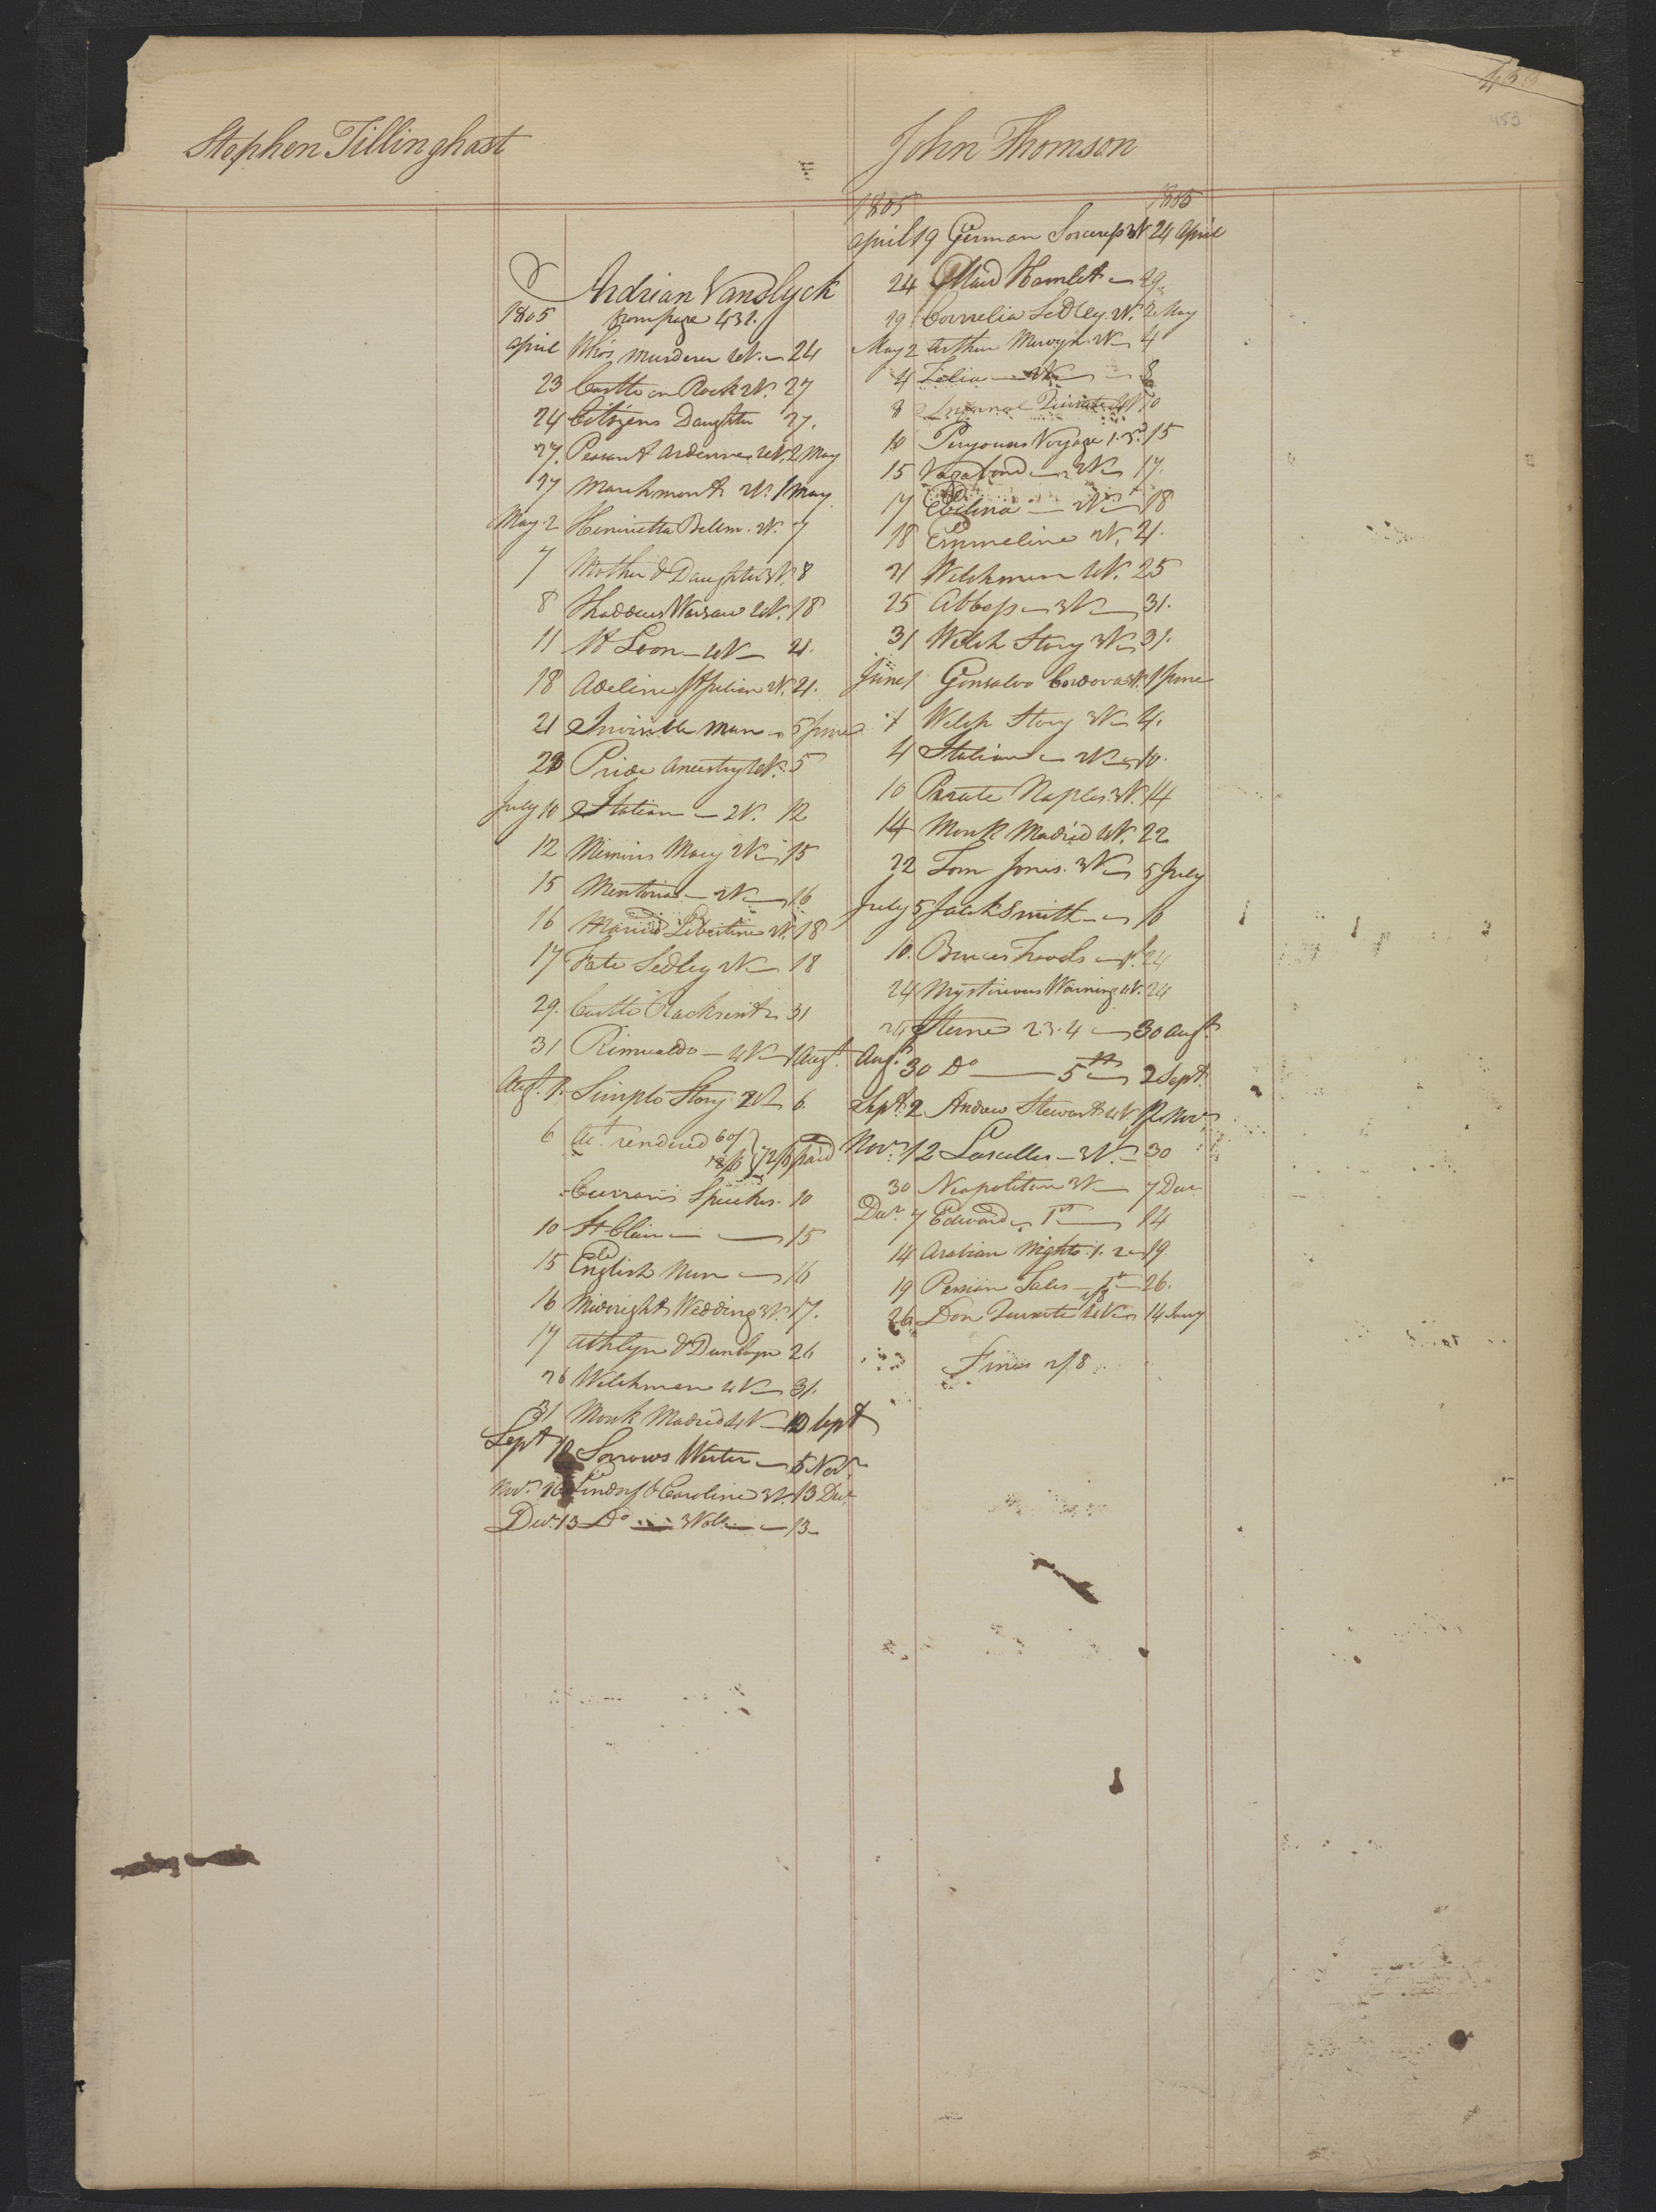 453
Stephen Tillinghast
Adrian VanSlyck
1805 from page 431.
April Who's Murderer 4V. 24
23 Castle on Rock 2V. 27
24 Citizens Daughter 27.
27. Peasant Ardennes 4V. 2 May
27 Marchmont 2V. 1 May
May 2 Henrietta Bellm. 2V. 7
7 Mother & Daughter 3V. 8
8 Thaddeus Warsaw 4V. 18
11 St Leon 4V 21.
18 Adeline St Julian 2V. 21.
21 Invisible Man 5 June
Pride Ancestry 4V. 5
July 10 Italian 2V. 12
12 Memoirs Mary 2V 15
15 Mentoria 2V 16
16 Married Libertine 2V. 18
17 Fate Sedley 2V 18
29. Castle Rackrent 31
31 Rimualdo 4V 1 Augt
Augt. 1. Simple Story 2V 6.
6 Act. rendered 60/ 12/6 72/6 paid
Currans Speeches. 10
10 St Clair 15
15 English Nun 16
16 Midnight Wedding 3V. 17.
17 Athlyn & Dunbayn 26
26 Welchmen 4V 31.
31 Monk Madrid 4V 12 Sept
Sept 12 Sorrows Werter 5 Nov.
Nov. Lindorf & Caroline 3V. 13 Decr
Decr. 13 Do 3 Vols 13
John Thomson
1805 1805
April 19 German Sorceress 3V 24 April
24 Maid Hamlet 29
29 Cornelia Sedley. 2V. 2 May
May 2 Arthur Mervyn. 2V 4
4 Zelia 8
8 Infernal Quixote 4V 10
10 Perouses Voyage 1. 3d 15
15 Vagabond 2V 17.
17 Evelina 2V 18
18 Emmeline 2V. 21.
21 Welchmen 4V. 25
25 Abbess 3V 31.
31 Welch Story 3V 31.
June 1 Gonsalvo Cordova 3V. 1 June
1 Welch Story 3V 4.
4 Italian 2V 10.
10 Pirate Naples 3V. 14
14 Monk Madrid 4V. 22
22 Tom Jones. 3V 5 July
July 5 Jack Smith 10
10. Bruces Travels 24
24 Mysterious Warning 4V. 24
24 Sterne 2. 3. 4 30 Augt
Augt. 30 Do 5th 2 Sept.
Sept. 2 Andrew Stewart 4V 12 Nov.
Nov. 12 Lascelles 3V. 30
30 Neapolitan 3V 7 Decr
Decr. 7 Edward 1st 14
14 Arabian Nights. 1. 2 19
19 Persian Tales 26.
26 Don Quixote 4V 14 Jany
Fines 2/8